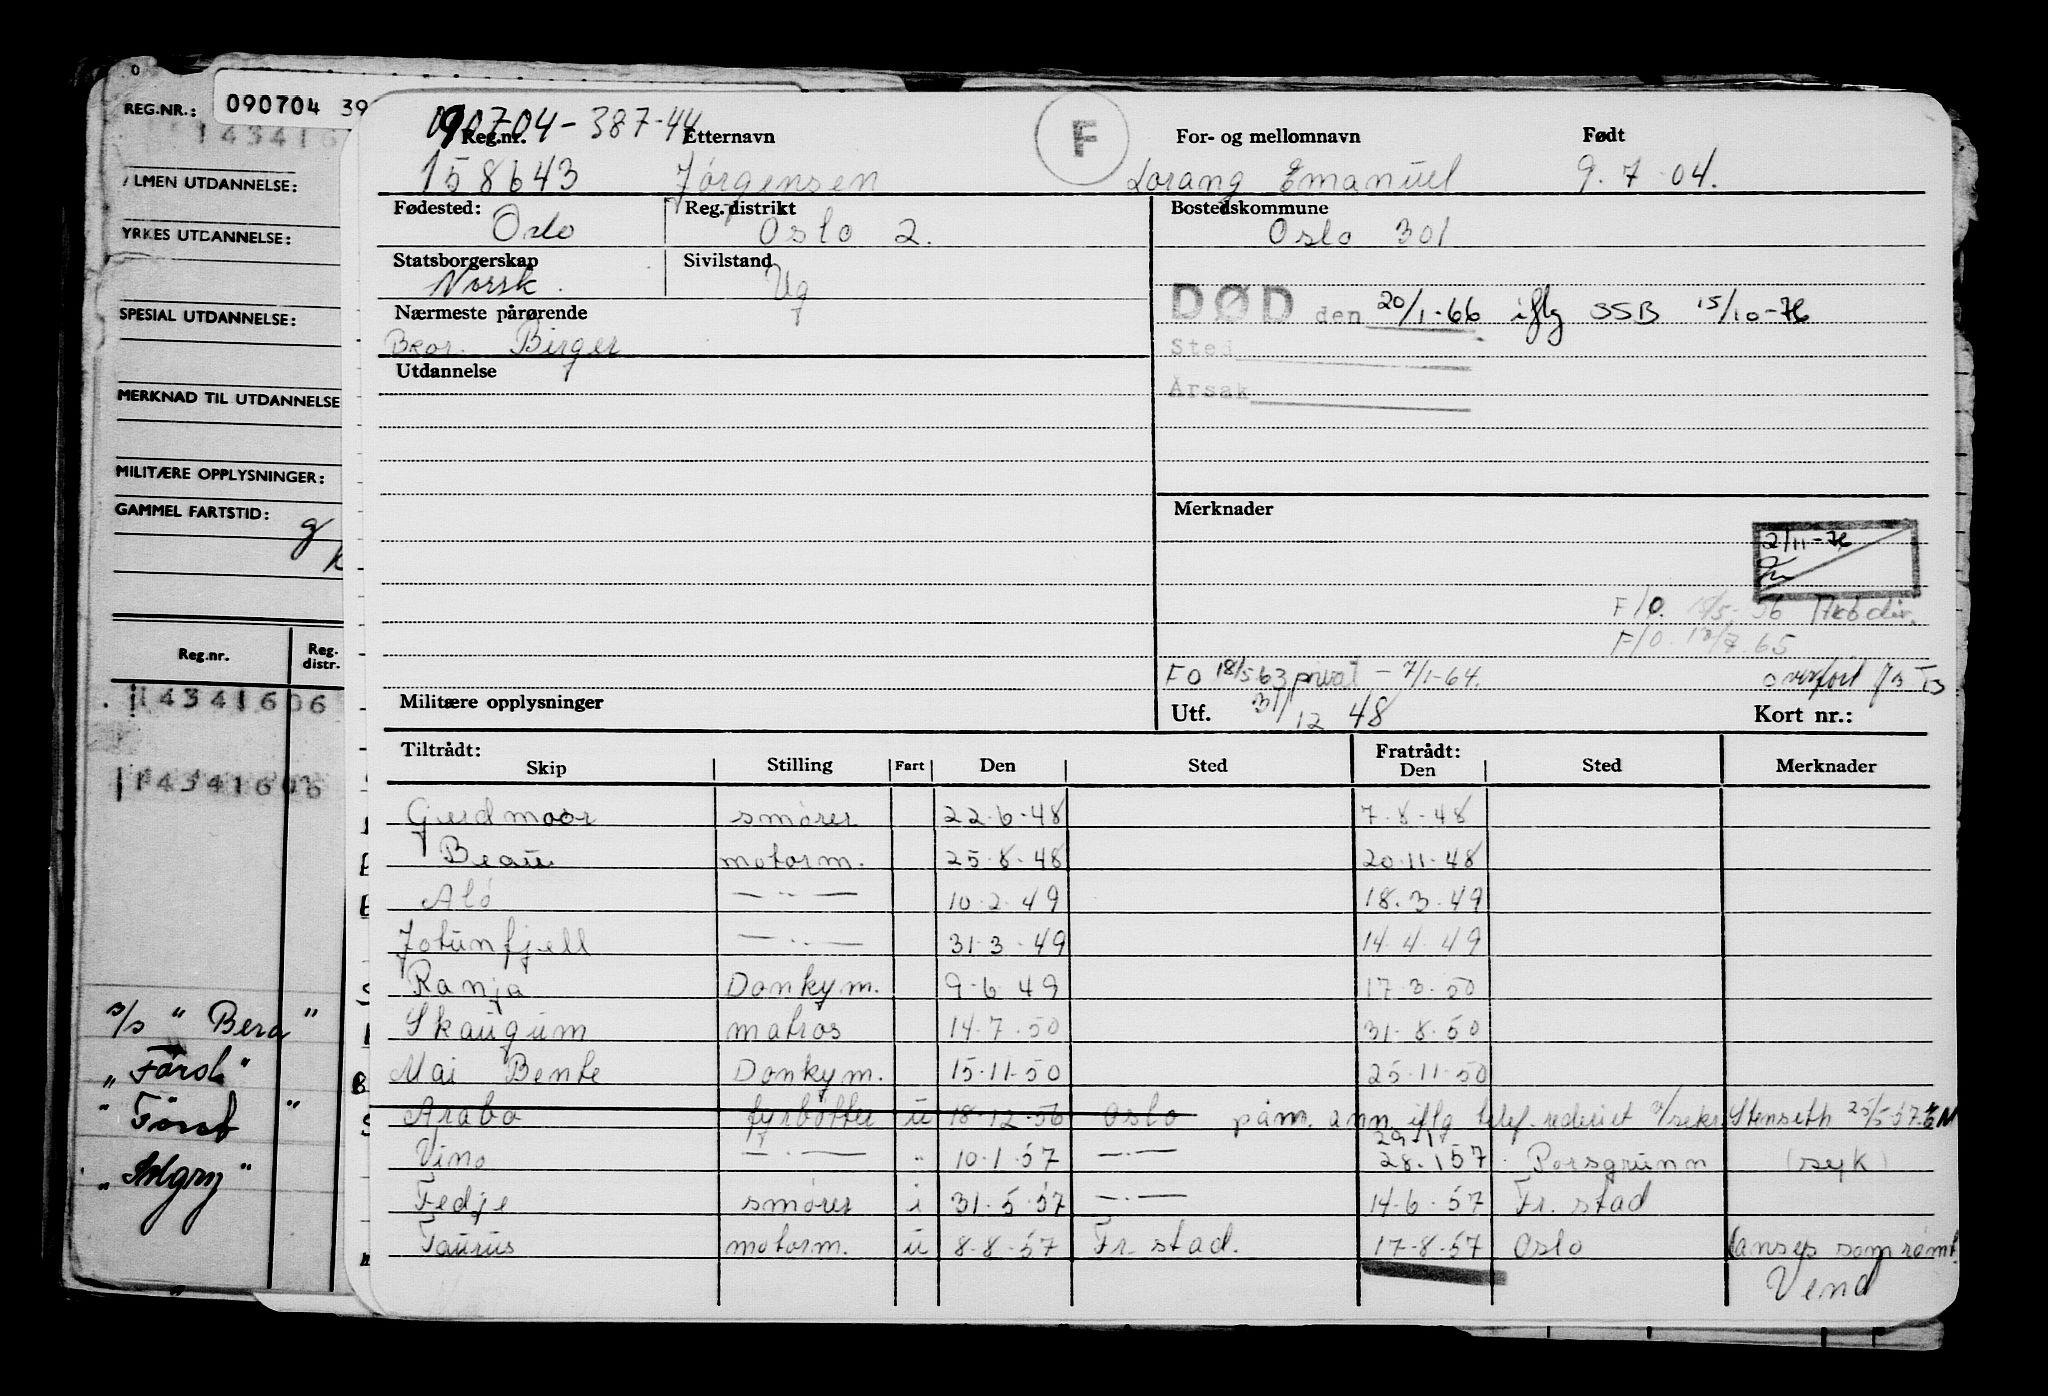 REG.NR.: 090704 39
1 4 3 4 1 6
LMEN UTDANNELSE:
YRKES UTDANNELSE:
SPESIAL UTDANNELSE:
MERKNAD TIL UTDANNELSE
MILITÆRE OPPLYSNINGER:
GAMMEL FARTSTID:
Reg.nr. Reg. distr.
1 4 3 4 1 6 0 6
1 4 3 4 1 6 0 6
s/s " Bera "
090704-387-44
Reg.nr. Etternavn F For- og mellomnavn Født
158643 Jørgensen Lorang Emanuel 9.7.04.
Fødested: Reg. distrikt Bostedskommune
Oslo Oslo 2. Oslo 301
Statsborgerskap Sivilstand
Norsk. Ug
DØD den 20/1-66 iflg SSB 15/10-76
Nærmeste pårørende
Bror. Birger
Sted
Utdannelse
Årsak
Merknader
2/11-76
F/O. 56 Arb dir.
F/O. 65
FO 18/5 63 privat - 7/1-64. overført
Militære opplysninger Utf. 31/12 48 Kort nr.:
Tiltrådt: Fratrådt:
Skip Stilling Fart Den Sted Den Sted Merknader
Gjerdmoor smører 22.6.48 7.8.48
Beau motorm. 25.8.48 20.11.48
Alo — " — 10.2.49 18.3.49
Jotunfjell — " — 31.3.49 14.4.49
Ranja Donkym. 9.6.49 17.3.50
Skaugum matros 14.7.50 31.8.50
Mai Bente Donkym. 15.11.50 25.11.50
Arabo fyrbøter u 18.12.56 Oslo påm. ann. iflg telef. rederiet v/sekr. Stenseth 25/5-57.
29.1
Vino — . — " 10.1.57 — . — 28.1 57 Porsgrunn (syk)
Fedje smører i 31.5.57 — . — 14.6.57 Fr. stad
Taurus motorm. u 8.8.57 Fr. stad. 17.8.57 Oslo (anses som rømt.
Vend